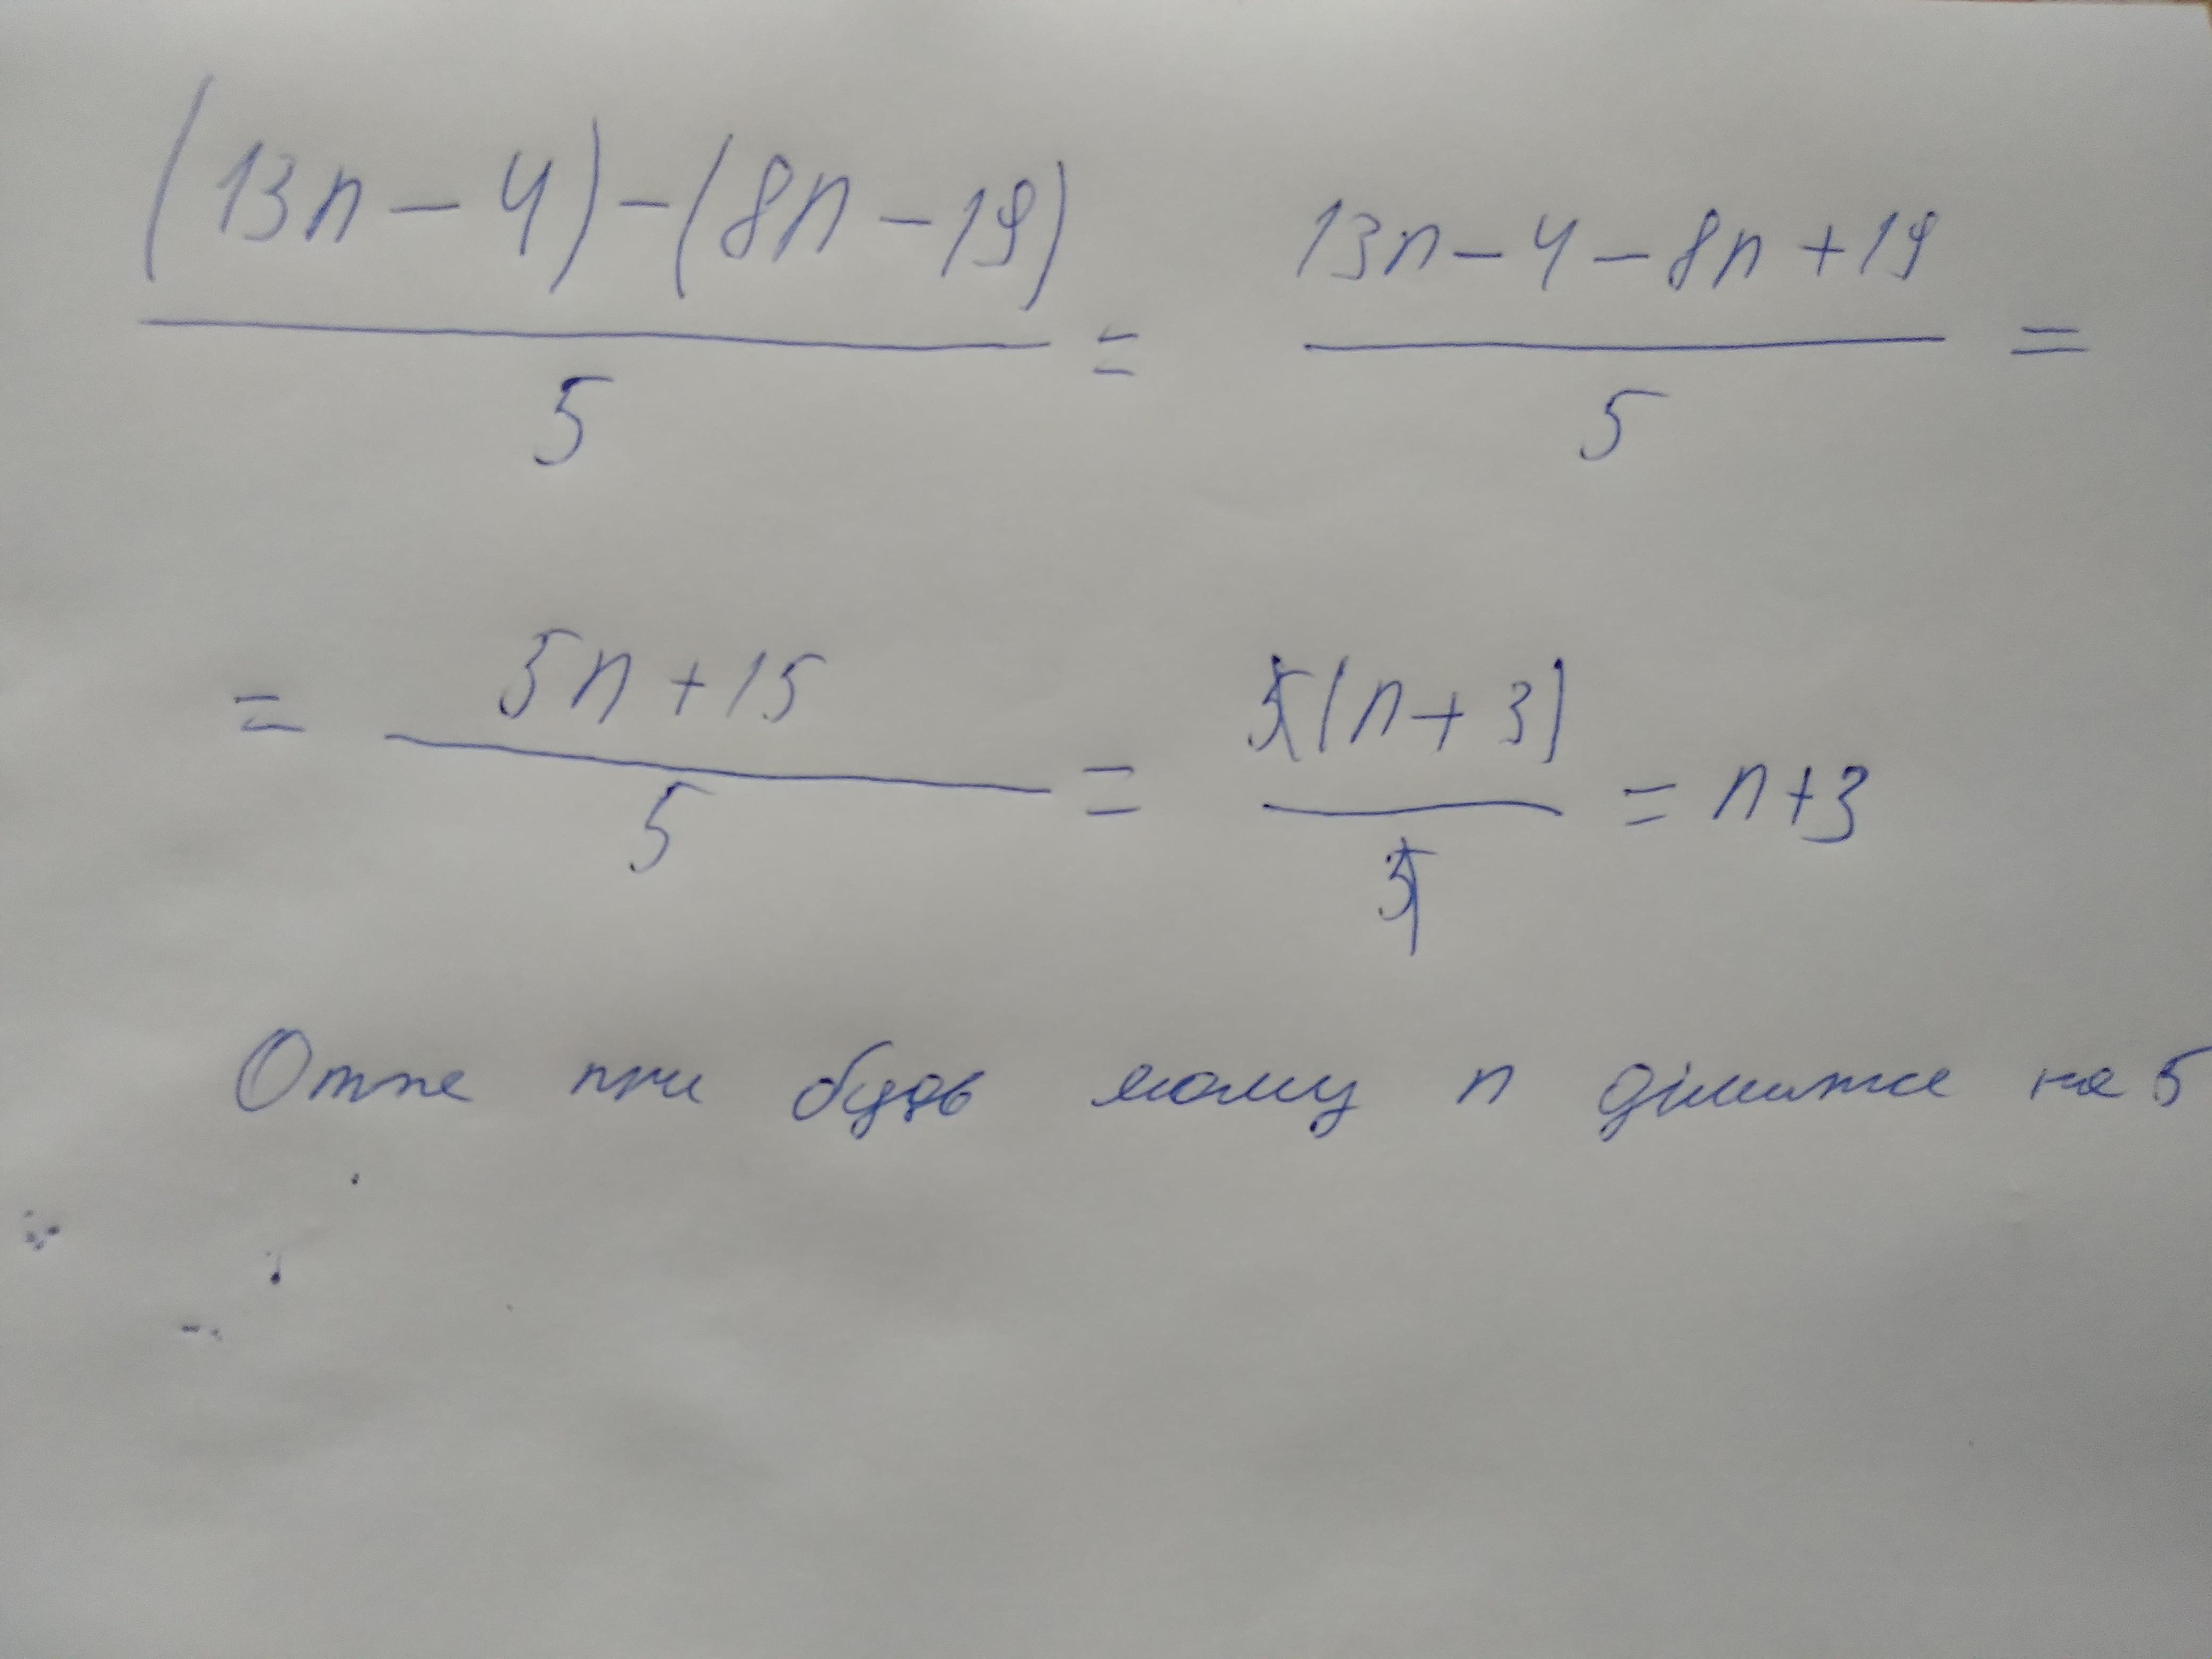 (13n - 4) - (8n - 19) / 5 = 13n - 4 - 8n + 19 / 5 =
= 5n + 15 / 5 = 5(n + 3) / 5 = n + 3
Отже при будь якому n ділиться на 5